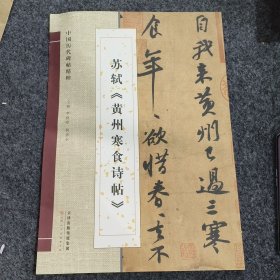 中国历代碑帖精粹
苏轼《黄州寒食诗帖》
自我来黄州已过三寒
食年年欲惜春春不